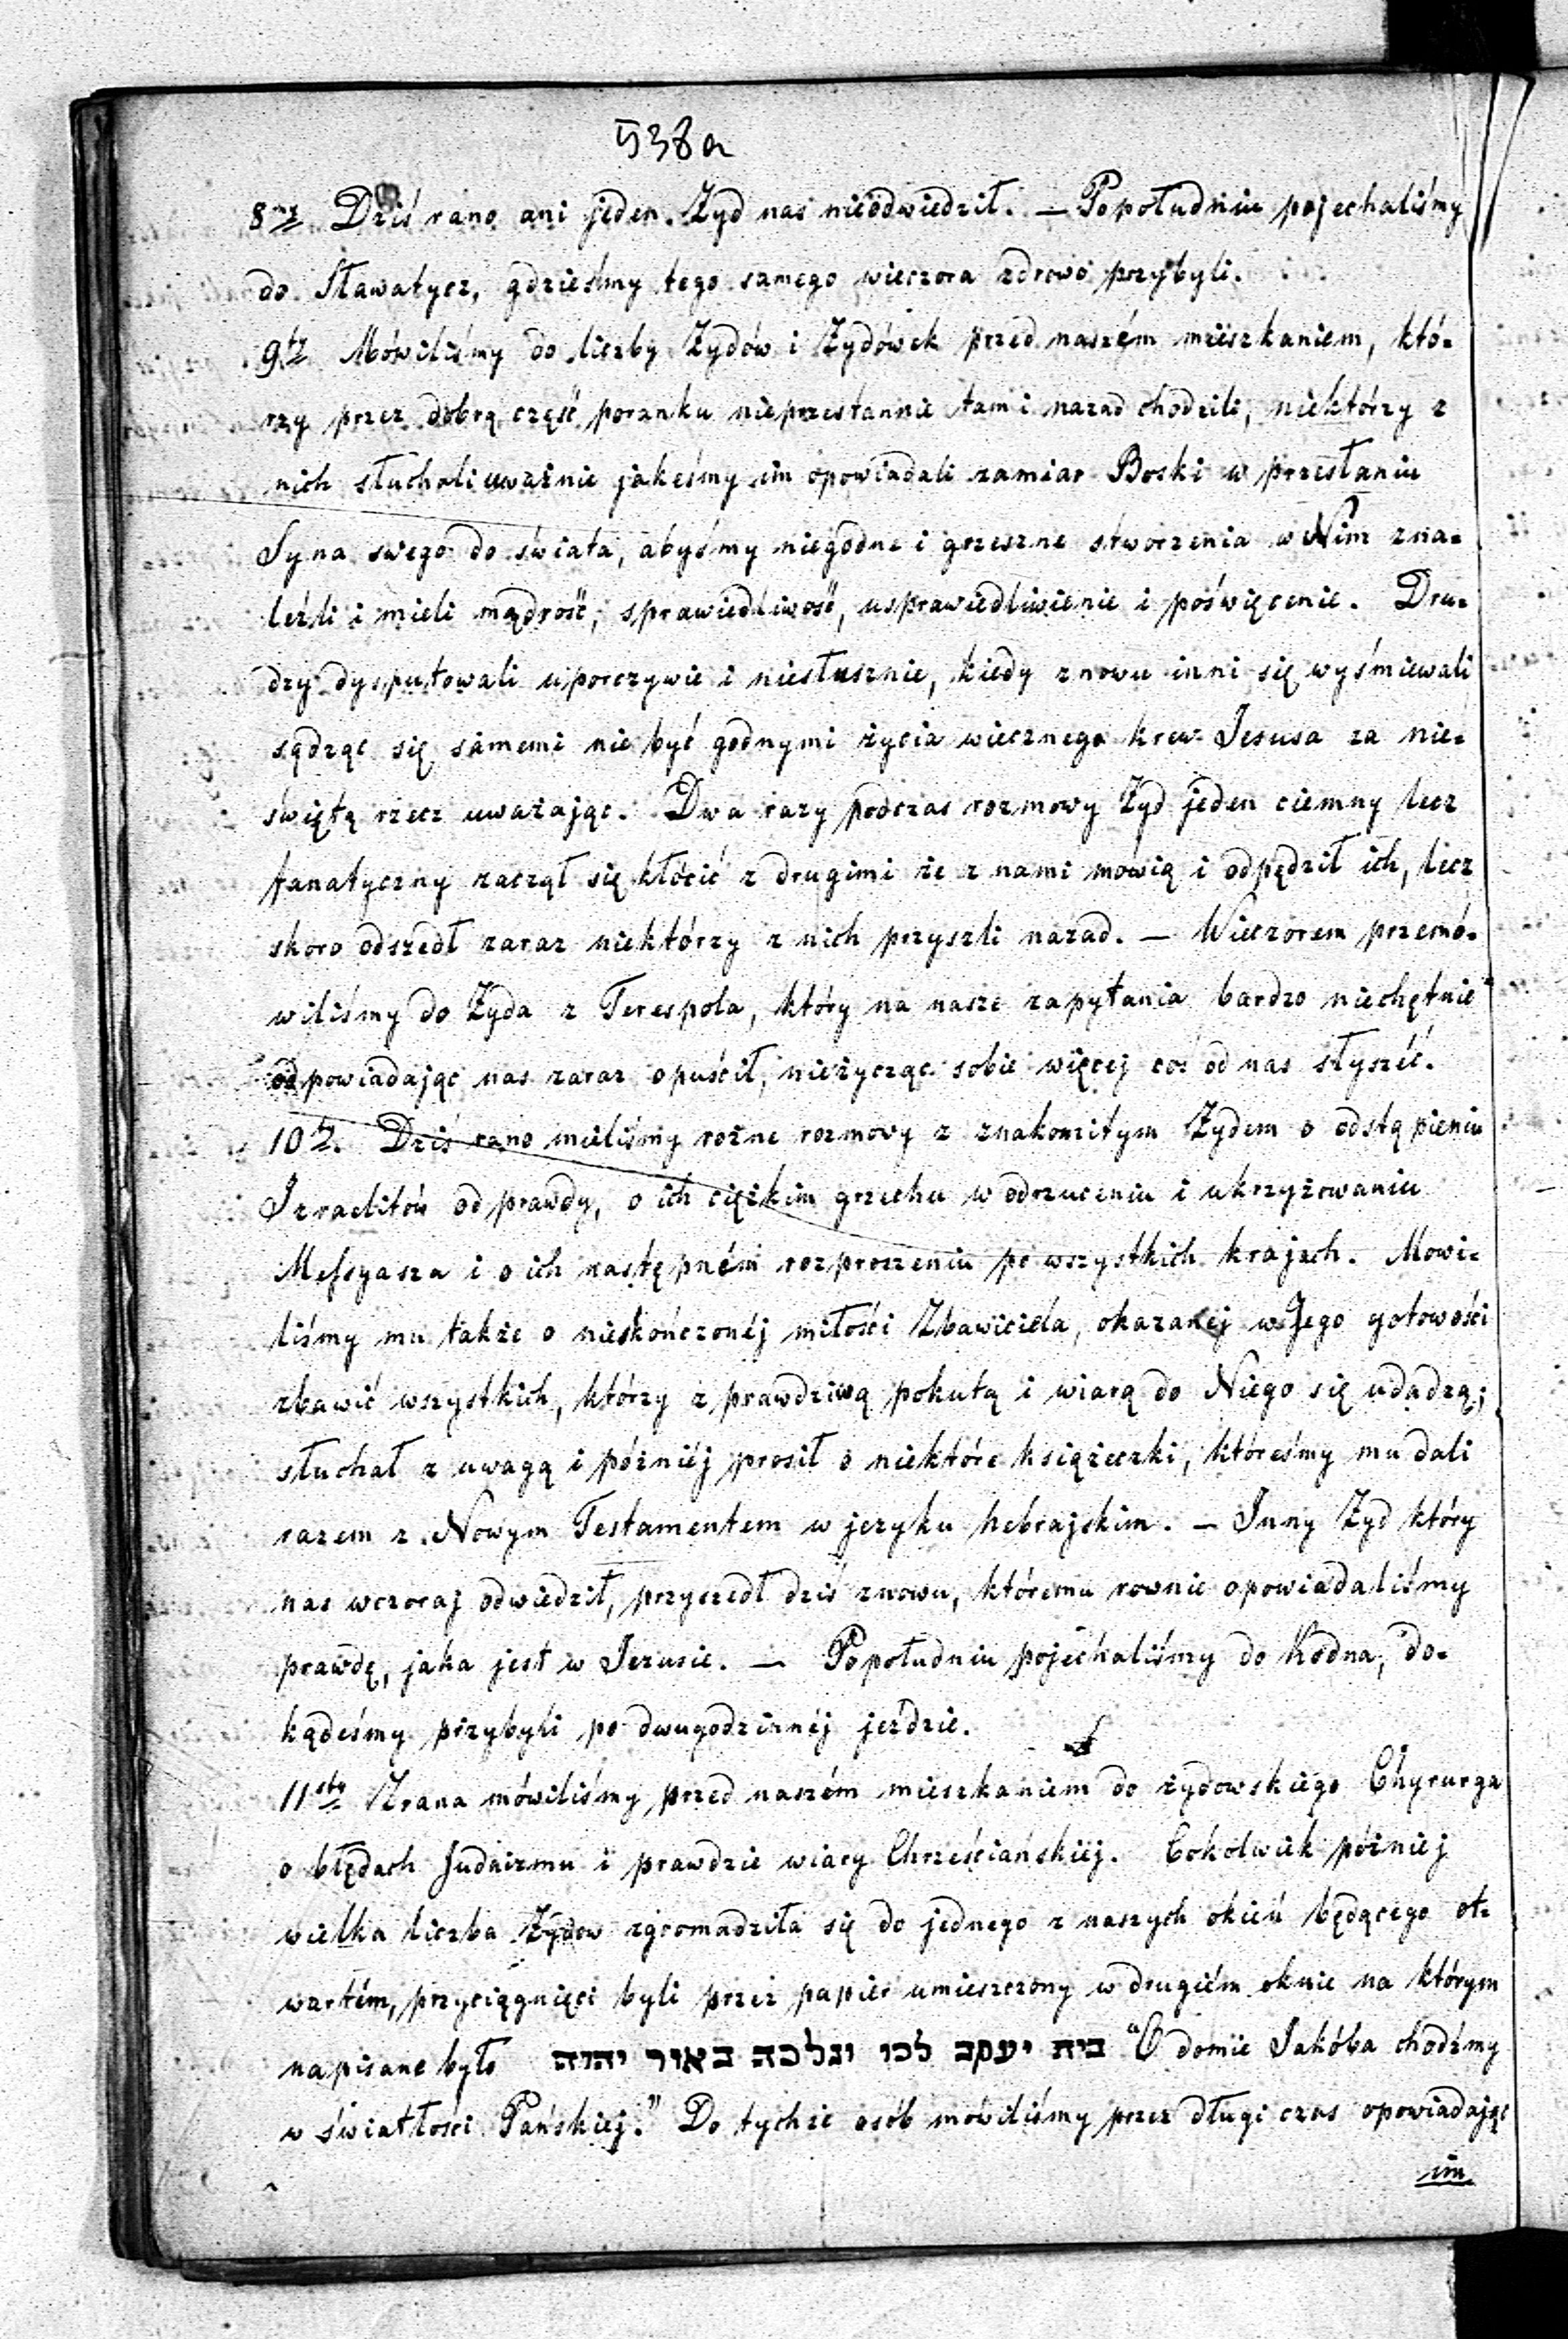 538a
8my Dziś rano ani jeden Żyd nas nieodwiedził. — Popołudniu pojechaliśmy
do Sławatycz, gdzieśmy tego samego wieczora zdrowo przybyli.
9ty Mówiliśmy do liczby Żydów i Żydówek przed naszém mieszkaniem, któ-
rzy przez dobrą część poranku nieprzestannie tam i nazad chodzili, niektórzy z
nich słuchali uważnie jakeśmy im opowiadali zamiar Boski w przesłaniu
Syna swego do świata, abyśmy niegodne i grzeszne stworzenia w Nim zna-
leźli i mieli mądrość, sprawiedliwość, usprawiedliwienie i poświęcenie. Dru-
dzy dysputowali uporczywie i niesłusznie, kiedy znowu inni się wyśmiewali
sądząc się samemi nie być godnymi życia wiecznego krew Jesusa za nie-
świętą rzecz uważając. Dwa razy podczas rozmowy Żyd jeden ciemny lecz
fanatyczny zaczął się kłócić z drugimi że z nami mówią i odpędził ich, lecz
skoro odszedł zaraz niektórzy z nich przyszli nazad. — Wieczorem przemó-
wiliśmy do Żyda z Terespola, który na nasze zapytania bardzo niechętnie
odpowiadając nas zaraz opuścił, nieżycząc sobie więcej coś od nas słyszéć.
10ty. Dziś rano mieliśmy rożne rozmowy z znakomitym Żydem o odstąpieniu
Izraelitów od prawdy, o ich ciężkim grzechu w odrzuceniu i ukrzyżowaniu
Mefsyasza i o ich następném rozproszeniu po wszystkich krajach. Mowi-
liśmy mu także o nieskończonéj miłości Zbawiciela, okazanej w Jego gotowości
zbawić wszystkich, którzy z prawdziwą pokutą i wiarą do Niego się udadzą;
słuchał z uwagą i późniéj prosił o niektóre książeczki, któreśmy mu dali
razem z Nowym Testamentem w jezyku hebrajskim. — Inny Żyd który
nas wczoraj odwiedził, przyszedł dziś znowu, któremu rownie opowiadaliśmy
prawdę, jaka jest w Jezusie. — Popołudniu pojechaliśmy do Kodna, do-
kądeśmy przybyli po dwugodzinnéj jeździe.
11sty Zrana mówiliśmy przed naszém mieszkaniem do żydowskiego Chyrurga
o błędach Judaizmu i prawdzie wiary Chrześciańskiéj. Cokolwiek póżniej
wielka liczba Żydow zgromadziła się do jednego z naszych okień będącego ot-
wartém, przyciągnięci byli przez papier umieszczony w drugiém oknie na którym
napisane było בית יעקב לכו ונלכה באור יהוה "O domie Jakóba chodźmy
w światłości Pańskiej." Do tychże osób mówiliśmy przez długi czas opowiadając
im